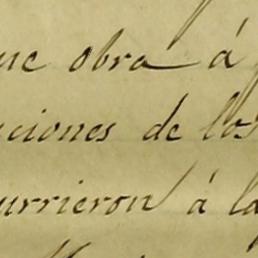 ue obra á
ciones de los
urrieron á la